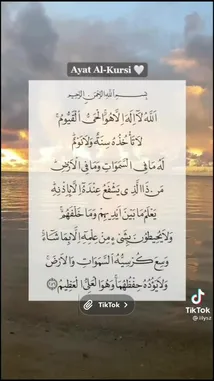 Ayat Al-Kursi 🤍
بِسْمِ اللهِ الرَّحْمٰنِ الرَّحِيْمِ
اَللهُ لَآ اِلٰهَ اِلَّا هُوَ الْحَيُّ الْقَيُّوْمُ
لَا تَأْخُذُهٗ سِنَةٌ وَّلَا نَوْمٌ
لَهٗ مَا فِى السَّمٰوَاتِ وَمَا فِى الْاَرْضِ
مَنْ ذَا الَّذِىْ يَشْفَعُ عِنْدَهٗٓ اِلَّا بِاِذْنِهٖ
يَعْلَمُ مَا بَيْنَ اَيْدِيْهِمْ وَمَا خَلْفَهُمْ
وَلَا يُحِيْطُوْنَ بِشَىْءٍ مِّنْ عِلْمِهٖٓ اِلَّا بِمَا شَآءَ
وَسِعَ كُرْسِيُّهُ السَّمٰوَاتِ وَالْاَرْضَ
وَلَا يَـُٔوْدُهٗ حِفْظُهُمَا وَهُوَ الْعَلِىُّ الْعَظِيْمُ
TikTok
TikTok